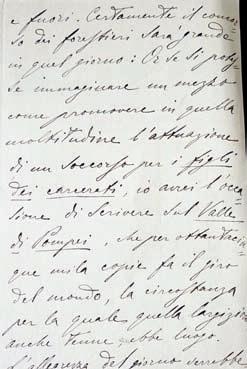 e fuori. Certamente il concor-
so dei forestieri sarà grande
in quel giorno: Or se si potes-
se immaginare un mezzo
come promovere in quella
moltitudine l'attuazione
di un soccorso per i figli
dei carcerati, io avrei l'occa-
sione di scrivere sul Valle
di Pompei, che per ottantacin-
que mila copie fa il giro
del mondo, la circostanza
per la quale quella largizione
anche tenue ebbe luogo.
L'allegrezza del giorno sarebbe